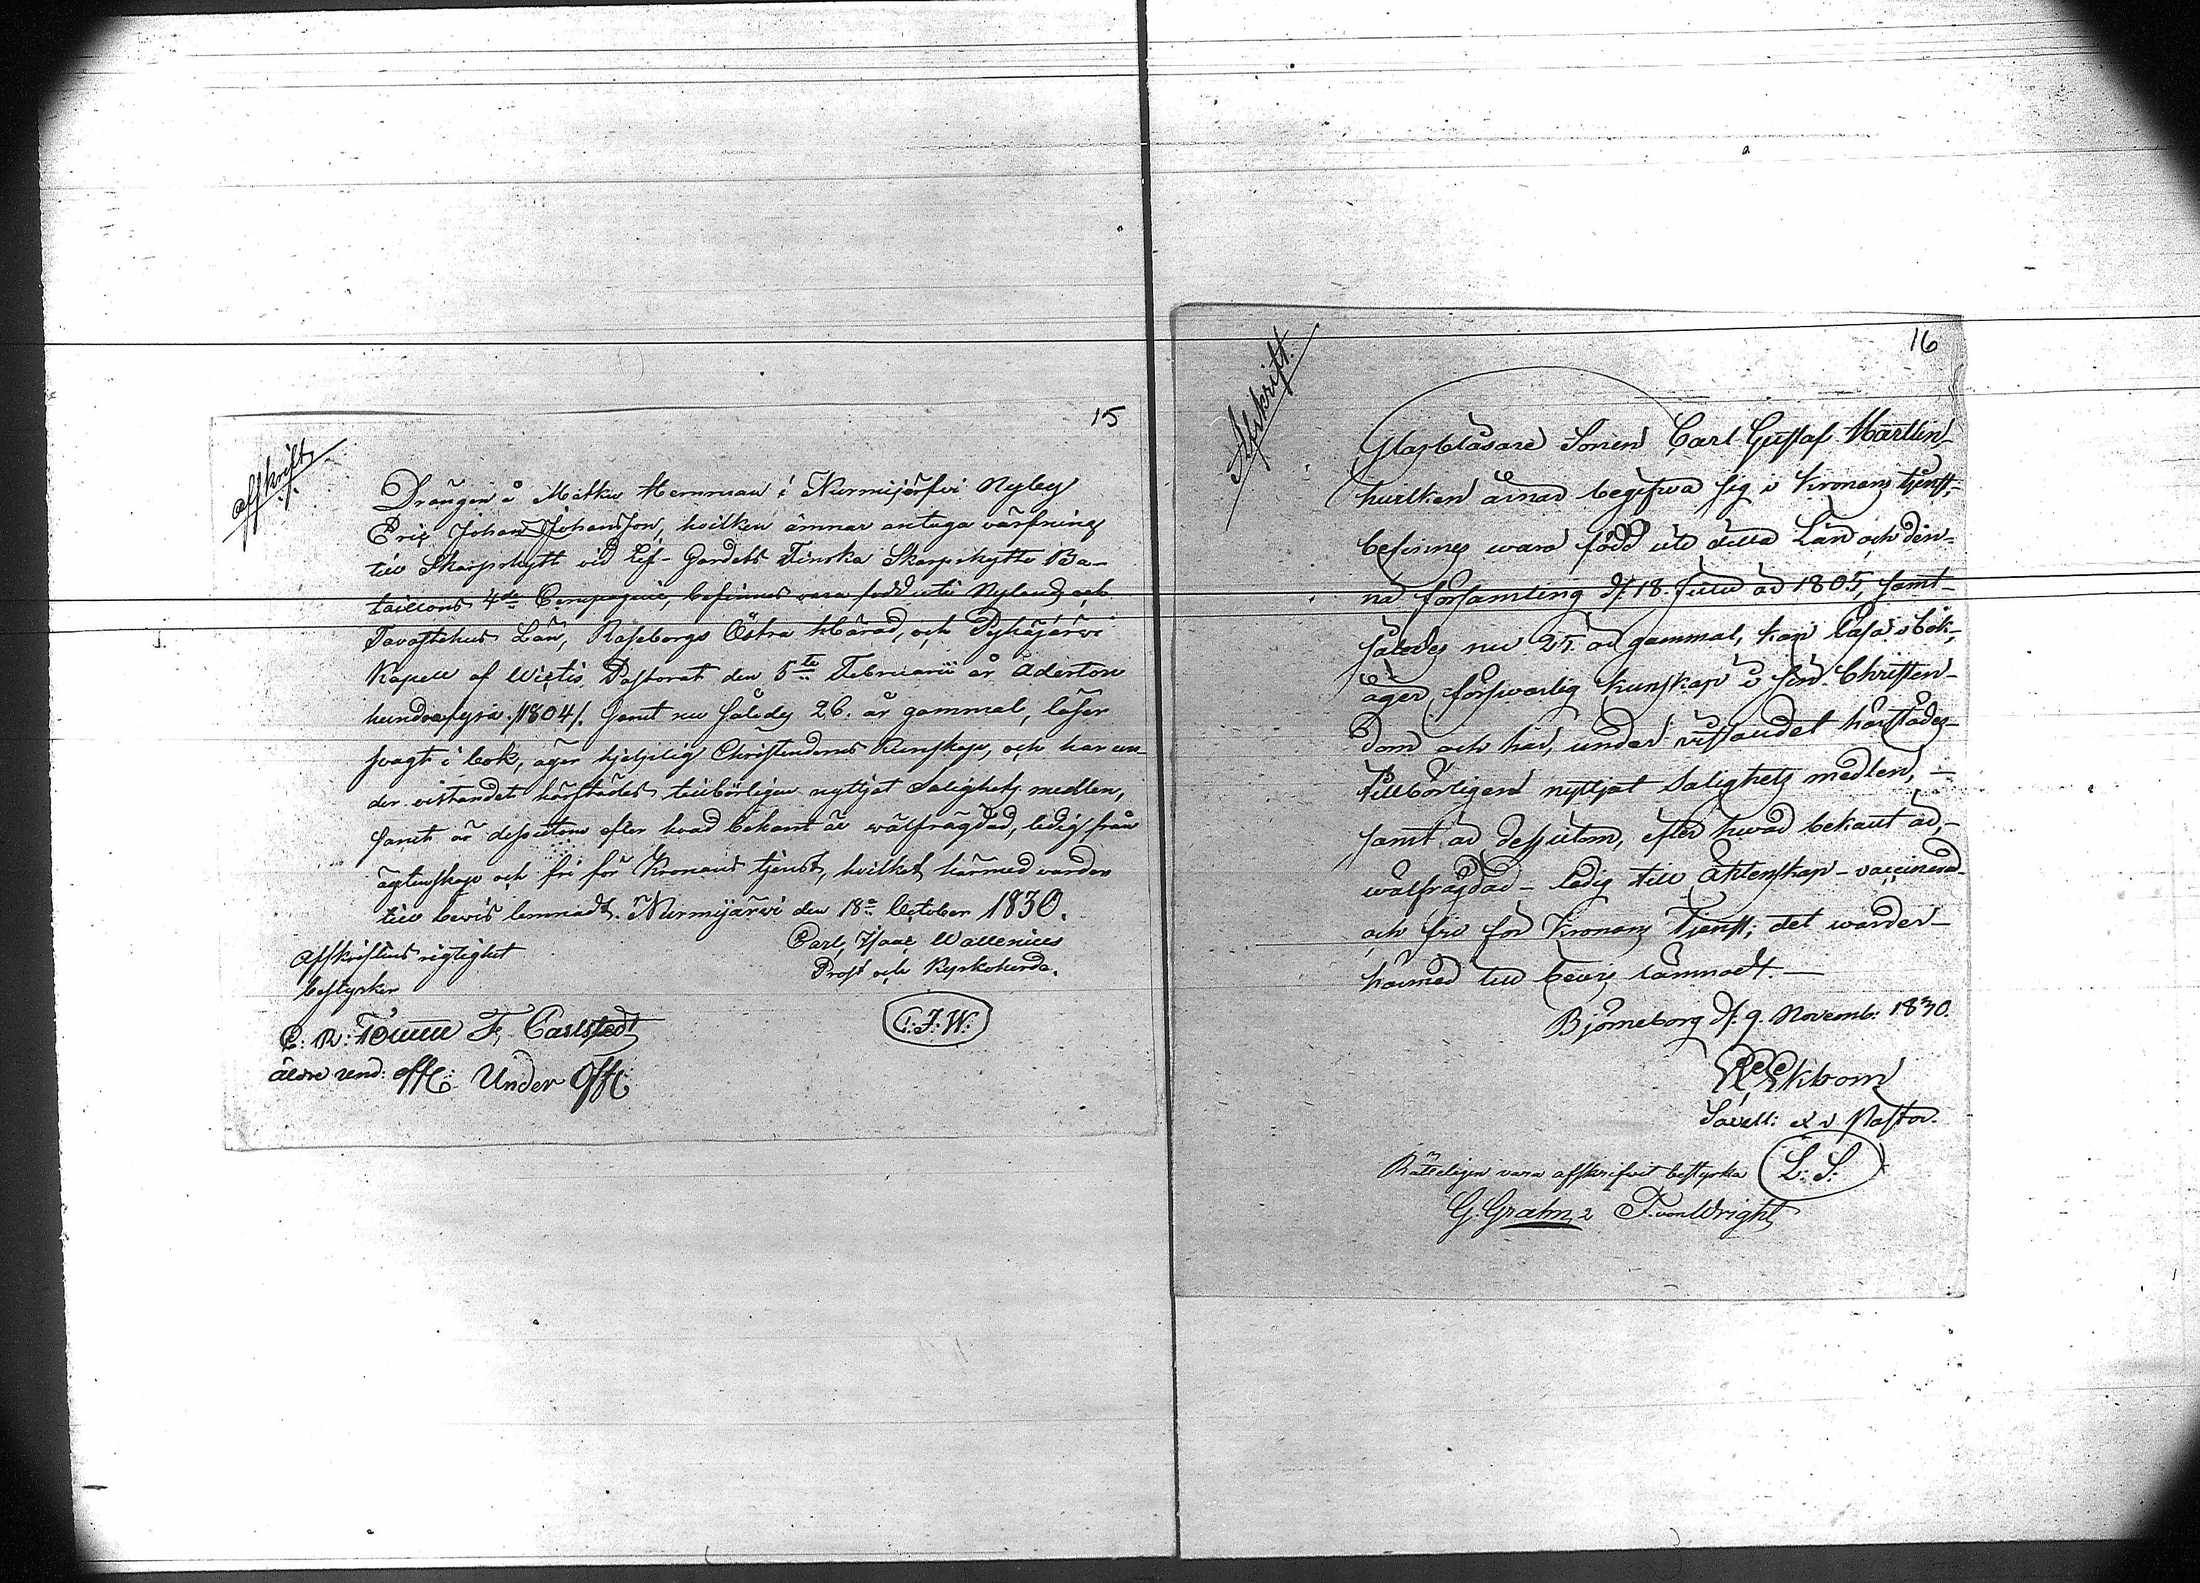 15
Afskrift.
Drängen å Matku Hemman i Nurmijärfvi Nyby
Eric Johan Johansson, hvilken ämnar antaga värfning
till Skarpskytt vid Lif-Gardets Finska Skarpskytte Ba-
taillons 4de Compagnie, befinnes vara född uti Nylands och
Tavastehus Län, Raseborgs Östra Härad, och Pyhäjärvi
Kapell af Wichtis Pastorat den 5te Februarii år Aderton
hundrafyra /1804/. Samt nu således 26. år gammal, läser
svagt i bok, äger hjelplig Christendoms Kunskap, och har un-
der vistandet härstädes tillbörligen nyttjat Salighets medlen,
samt är dessutom efter hvad bekant är välfrägdad, ledig från
ägtenskap och fri för Kronans tjenst, hvilket härmed varder
till bevis lemnadt. Nurmijärvi den 18de October 1830.
Carl Isaac Wallenius
Prost och Kyrkoherde.
Afskriftens rigtighet
bestyrker
C:J:W:
C: R: F. Carlstedt
äldre und: Off: Under Off:
16
Afskrift.
Glasblåsare Sonen Carl Gustaf Martlin,
hvilken ärnar begifva sig i Kronans tjenst,
befinnes wara född uti detta Län och den-
na församling d. 18. Julii år 1805, samt
således nu 25 år gammal, kan läsa i bok,
äger försvarlig kunskap i sin Christen-
dom och har, under vistandet härstädes
tillbörligen nyttjat Salighets medlen,
samt är dessutom, efter hvad bekant är,
wälfrägdad - ledig till Äktenskap - vaccinerad
och fri för Kronans Tjenst; det warder
härmed till bevis lämnadt. —
Björneborg d. 9. Novemb: 1830.
Ekbom
v Pastor.
L: S:
Rätteligen vara afskrifvit bestyrka
G. Grahn 2 F. von Wright